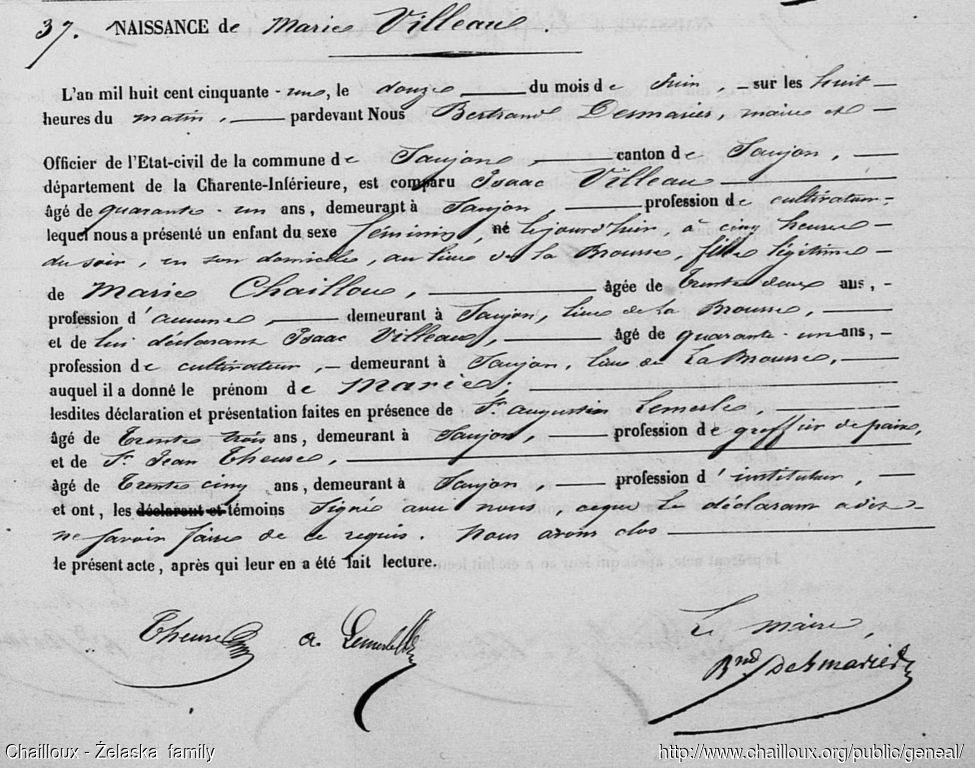 37. NAISSANCE de Marie Villeau
L'an mil huit cent cinquante-une, le douze du mois de Juin, sur les huit
heures du matin, pardevant Nous Bertrand Desmarier, maire et
Officier de l'Etat-civil de la commune de Saujon canton de Saujon,
département de la Charente-Inférieure, est comparu Isaac Villeau
âgé de quarante-un ans, demeurant à Saujon, profession de cultivateur
lequel nous a présenté un enfant du sexe féminin, né le jourd'huir, à cinq heures
du soir, en son domicile, au lieu de la Brousse, fille légitime
de Marie Chailloux, âgée de trente deux ans,
profession d'aucune, demeurant à Saujon, lieu de la Brousse,
et de lui déclarant Isaac Villeau, âgé de quarante-un ans,
profession de cultivateur, demeurant à Saujon, lieu de La Brousse,
auquel il a donné le prénom de Marie;
lesdites déclaration et présentation faites en présence de Sr. augustin Lemerle,
âgé de trente trois ans, demeurant à Saujon, profession de greffier de paix,
et de Sr. Jean Theure,
âgé de trente cinq ans, demeurant à Saujon, profession d'instituteur,
et ont, les déclarant et témoins signé avec nous, ceque le déclarant a dit
ne savoir faire de ce requis. Nous avons clos
le présent acte, après qui leur en a été fait lecture.
Theure a. Lemerle Le maire,
Bnd Desmarier
Chailloux - Żelaska family http://www.chailloux.org/public/geneal/